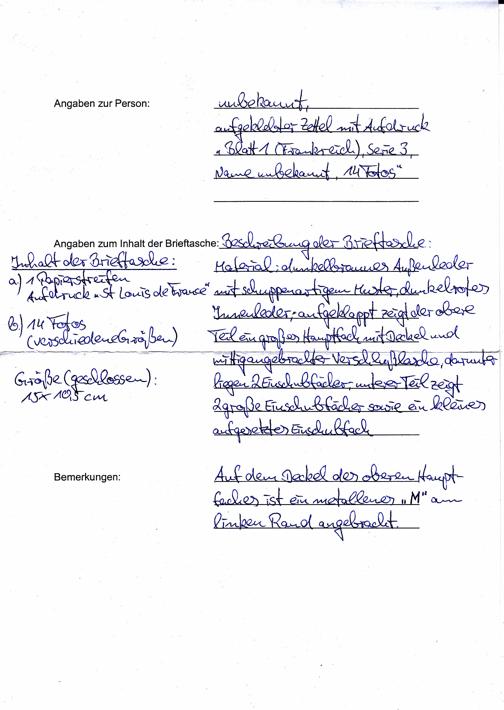 Angaben zur Person:
unbekannt,
aufgeklebter Zettel mit Aufdruck
„Blatt 1 (Frankreich), Serie 3,
Name unbekannt, 14 Fotos“
Angaben zum Inhalt der Brieftasche:
Beschreibung der Brieftasche:
Material: dunkelbraunes Außenleder
mit schuppenartigem Muster, dunkelrotes
Innenleder; aufgeklappt zeigt der obere
Teil ein großes Hauptfach mit Deckel und
mittig angebrachter Verschlußlasche, darunter
liegen 2 Einschubfächer; unterer Teil zeigt
2 große Einschubfächer sowie ein kleines
aufgesetztes Einschubfach
Inhalt der Brieftasche:
a) 1 Papierstreifen
Aufdruck „St Louis de France“
b) 14 Fotos
(verschiedene Größen)
Größe (geschlossen):
15 x 10,5 cm
Bemerkungen:
Auf dem Deckel des oberen Haupt-
faches ist ein metallenes „M“ am
linken Rand angebracht.